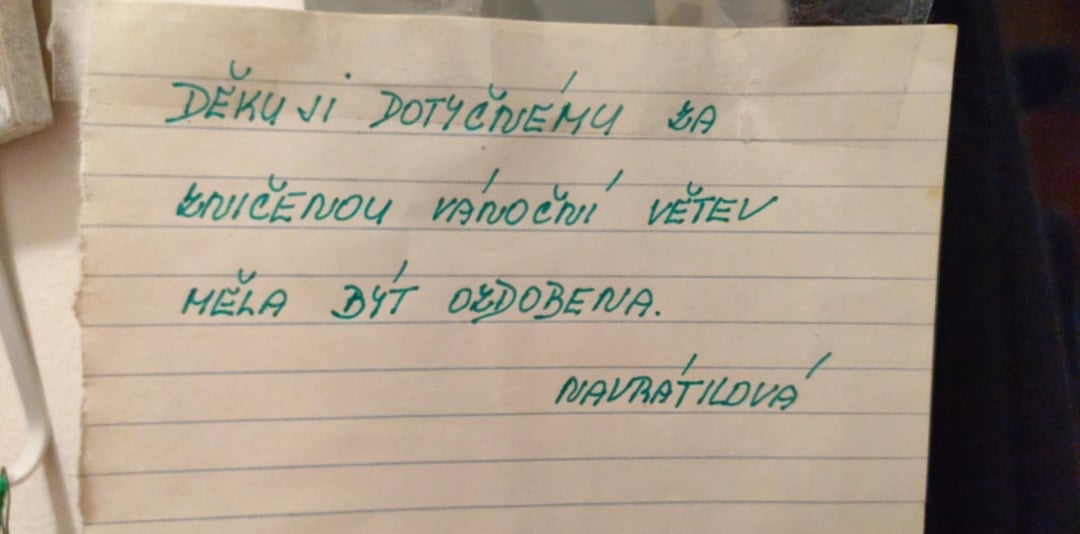 DĚKUJI DOTYČNÉMU ZA
ZNIČENOU VÁNOČNÍ VĚTEV
MĚLA BÝT OZDOBENA.
NAVRÁTILOVÁ